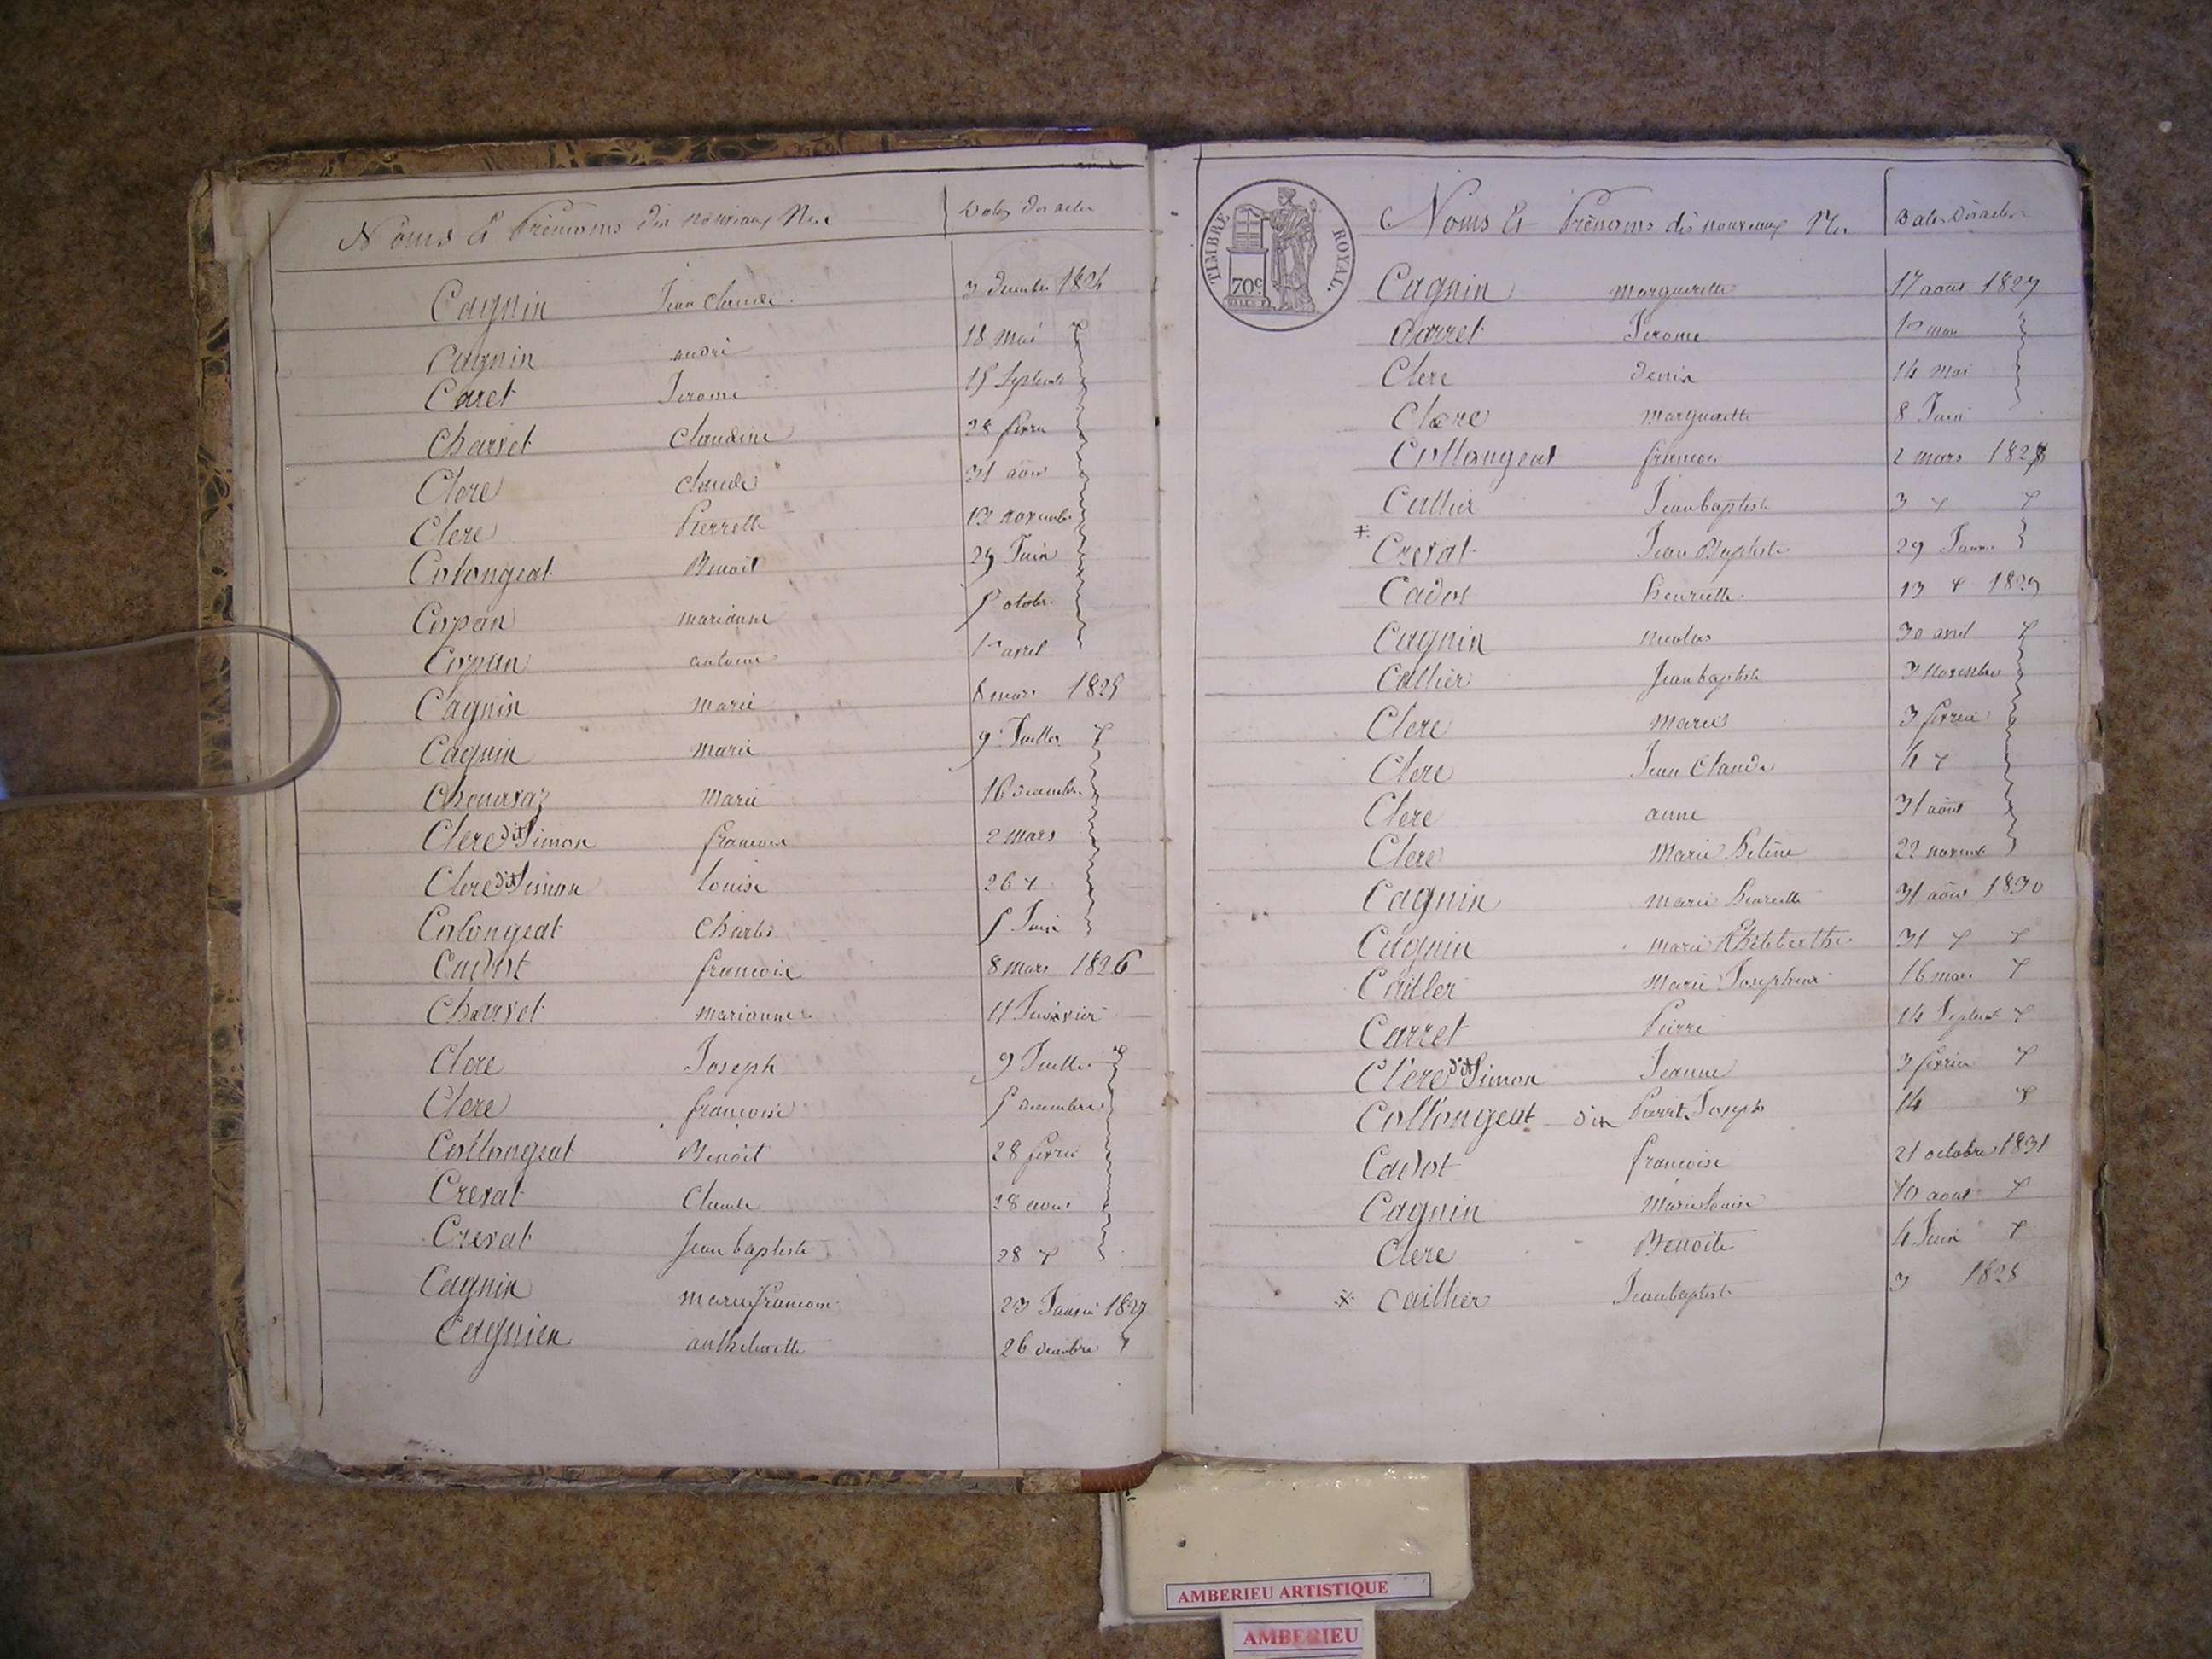 Noms & Prénoms des nouveaux Nés Dates des actes
Cagnin Jean Claude 3 décembre 1824
Cagnin andré 18 mai
Caret Jerome 15 Septembre
Charvet Claudine 28 fevri
Clere Claude 31 aout
Clere Pierrette 12 novembre
Colongeat Benoit 29 Juin
Copan marianne 5 octobr
Copan antoine 1er avril
Cagnin marie 8 mars 1825
Cagnin marie 9 Juillet
Chouvraz Marie 16 decembre
Clere dit Simon francoise 2 mars
Clere dit Simon louise 26
Colongeat Charles 5 Juin
Cadot francoise 8 mars 1826
Charvet marianne 11 Janvier
Clere Joseph 9 Juillet
Clere francoise 5 decembre
Collongeat Benoit 28 fevrie
Crevat Claude 28 aout
Crevat Jean baptiste 28
Cagnin marie francoise 23 Janvier 1827
Cagnien anthelmette 26 decembre
TIMBRE ROYAL.
70c
Noms & Prénoms des nouveaux Nés Dates Des actes
Cagnin marguerite 17 aout 1827
Carret Jerome 12 mai
Clere denis 14 mai
Clere marguerite 8 Juin
Collongeat francois 2 mars 1828
Callier Jean baptiste 3
Crevat Jean Baptiste 29 Janv
Cadot henriette 13 1829
Cagnin nicolas 30 avril
Callier Jean baptiste 3 Novembre
Clere marie 3 fevrier
Clere Jean Claude 4
Clere anne 31 août
Clere Marie hélène 22 novemb
Cagnin marie henriette 31 août 1830
Cagnin marie Philiberthe 31
Cailler Marie Josephine 16 mars
Carret Pierre 14 Septemb
Clere dit Simon Jeanne 3 fevrier
Collongeat dit Pierre Joseph 14
Cadot francoise 21 octobre 1831
Cagnin Marie louise 10 aout
Clere Benoite 4 Juin
* Caillier Jean baptiste 3 1828
AMBERIEU ARTISTIQUE
AMBERIEU